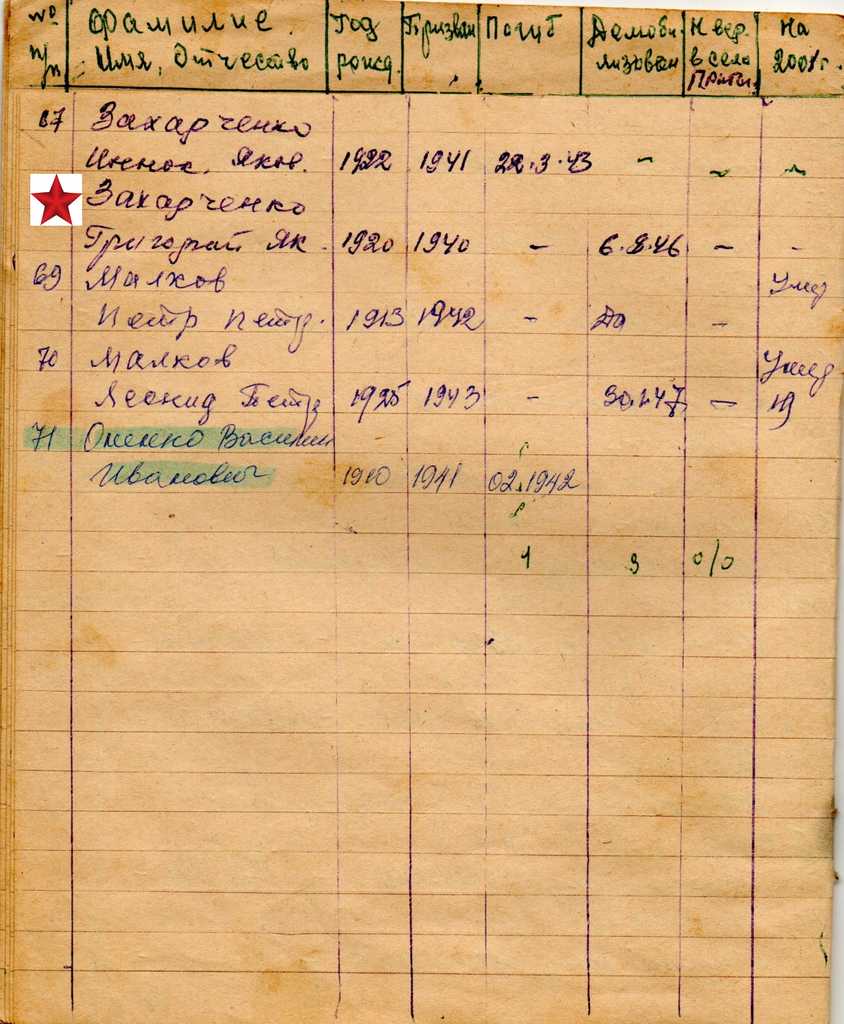 № Фамилие. Год Призван Погиб Демоби- Не вер. На
п/п Имя, Отчество рожд. лизован в село 2001 г.
67 Захарченко
Иннок. Яков. 1922 1941 22.3.43 - - -
Захарченко
Григорий Як. 1920 1940 - 6.8.46 - -
69 Малков Умер
Петр Петр. 1913 1942 - Да -
70 Малков Умер
Леонид Петр 1925 1943 - -
71 Оненко Василий
Иванович 1910 1941 02.1942
1 3 0/0